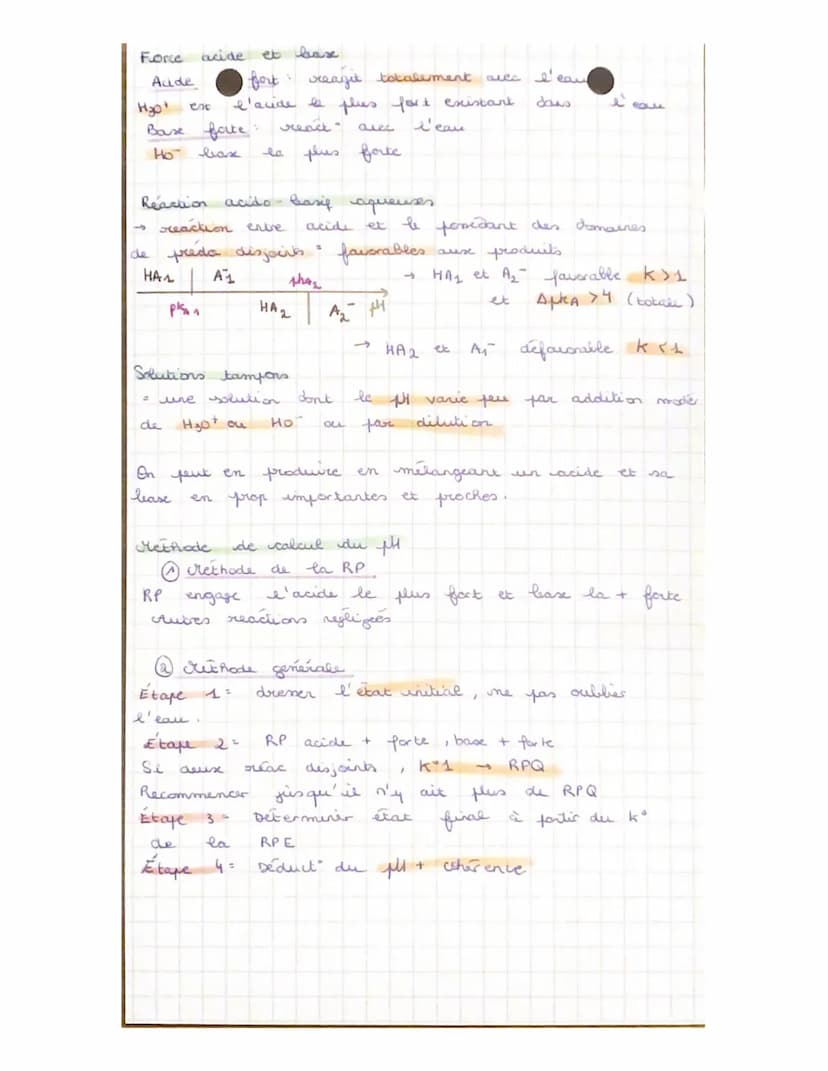 Force acide et base
Acide fort : reagit totalement avec l'eau
H3O+ est l'acide le plus fort existant dans l'eau
Base forte : react° avec l'eau
HO- base la plus forte
Réaction acido-basiq aqueuses
→ reaction entre acide et b possédant des domaines
de prédo disjoints = favorables aux produits
HA1 | A1- pka2 → HA1 et A2- favorable k>1
pkA1 HA2 | A2- pH et ΔpkA >4 (totale)
→ HA2 et A1- défavorable k<1
Solutions tampons
= une solution dont le pH varie peu par addition modér
de H3O+ ou HO- ou par dilution
On peut en produire en mélangeant un acide et sa
base en prop importantes et proches.
Méthode de calcul du pH
① Méthode de la RP
RP engage l'acide le plus fort et base la + forte
Autres reactions négligées
② Méthode générale
Étape 1 = dresser l'état initial, ne pas oublier
l'eau.
Étape 2 = RP acide + forte, base + forte
Si deux réac disjoints, K° 1 → RPQ
Recommencer jusqu'il n'y ait plus de RPQ
Étape 3 = Déterminer état final à partir du k°
de la RPE
Étape 4 = Déduct° du pH + cohérence